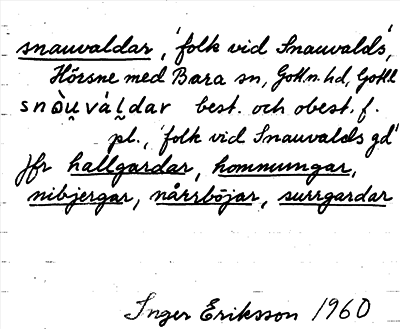 snauvaldar, 'folk vid Snauvalds',
Hörsne med Bara sn, Gotln. hd, Gotll
snòu̯vál̥dar best. och obest. f.
pl., 'folk vid Snauvalds gd'
jfr hallgardar, hommungar,
nibjergar, nårrböjar, surrgardar
Inger Eriksson 1960